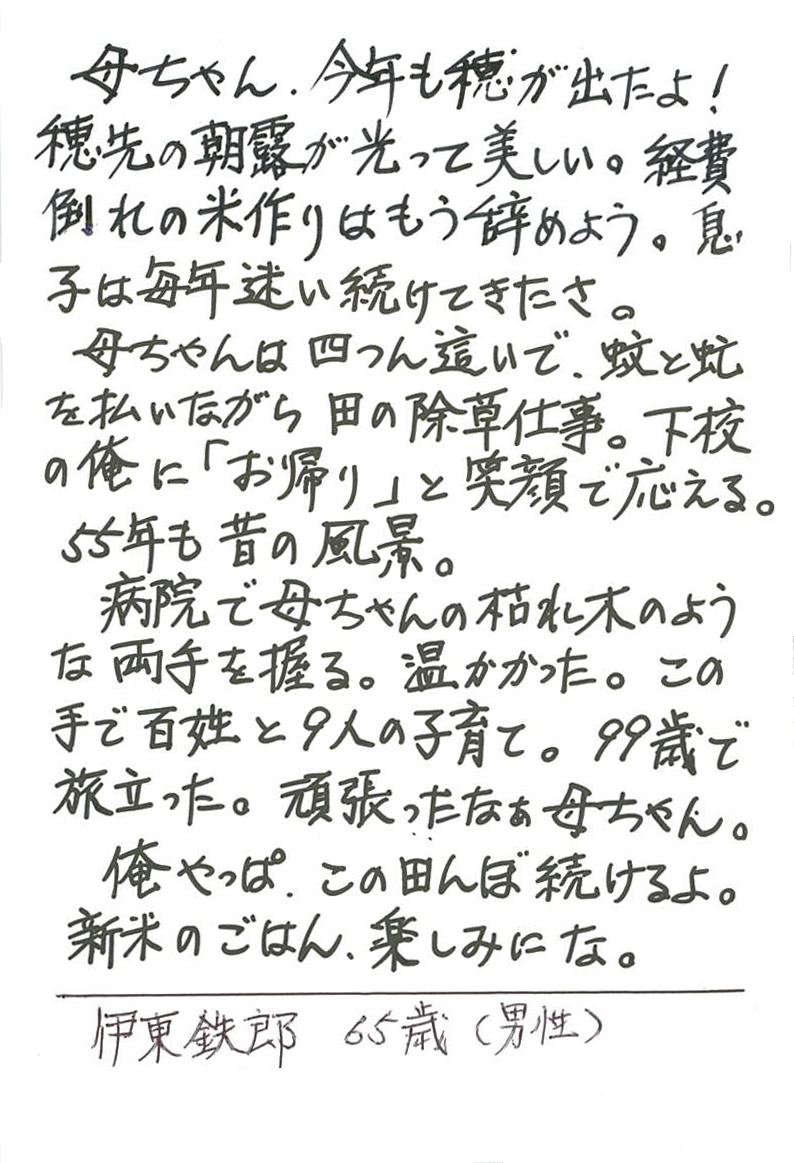 母ちゃん、今年も穂が出たよ！
穂先の朝露が光って美しい。経費
倒れの米作りはもう辞めよう。息
子は毎年迷い続けてきたさ。
母ちゃんは四つん這いで、蚊と虻
を払いながら田の除草仕事。下校
の俺に「お帰り」と笑顔で応える。
55年も昔の風景。
病院で母ちゃんの枯れ木のよう
な両手を握る。温かかった。この
手で百姓と9人の子育て。99歳で
旅立った。頑張っだなぁ母ちゃん。
俺やっぱ、この田んぼ続けるよ。
新米のごはん、楽しみにな。
伊東鉄郎 65歳（男性）